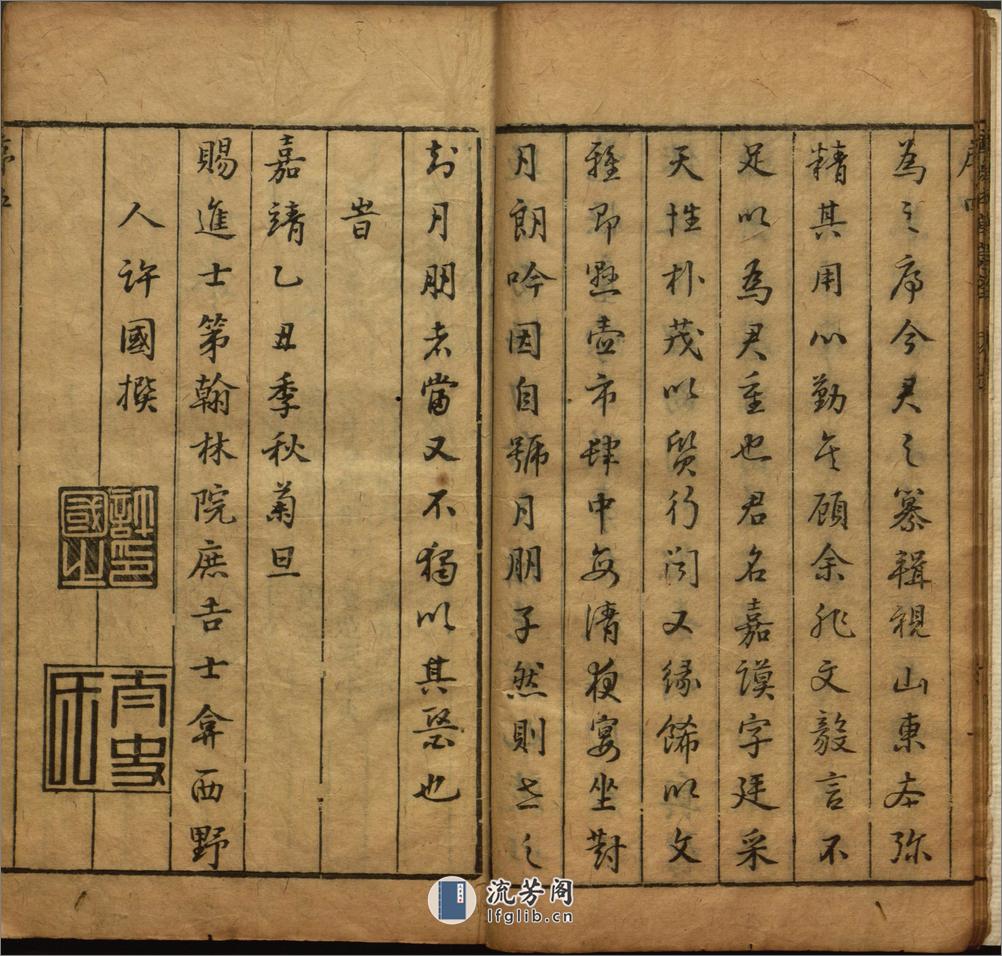 為之序今君之纂輯視山東本弥
精其用心勤矣顧余非文毅言不
足以為君重也君名嘉謨字廷采
天性朴茂以質行聞又緣餙以文
雅即懸壺市肆中每清夜宴坐對
月朗吟因自號月朋子然則世之
知月朋者當又不獨以其醫也
旹
嘉靖乙丑季秋菊旦
賜進士第翰林院庶吉士弇西野
人許國撰
許國之印
流芳阁
lfglib.cn